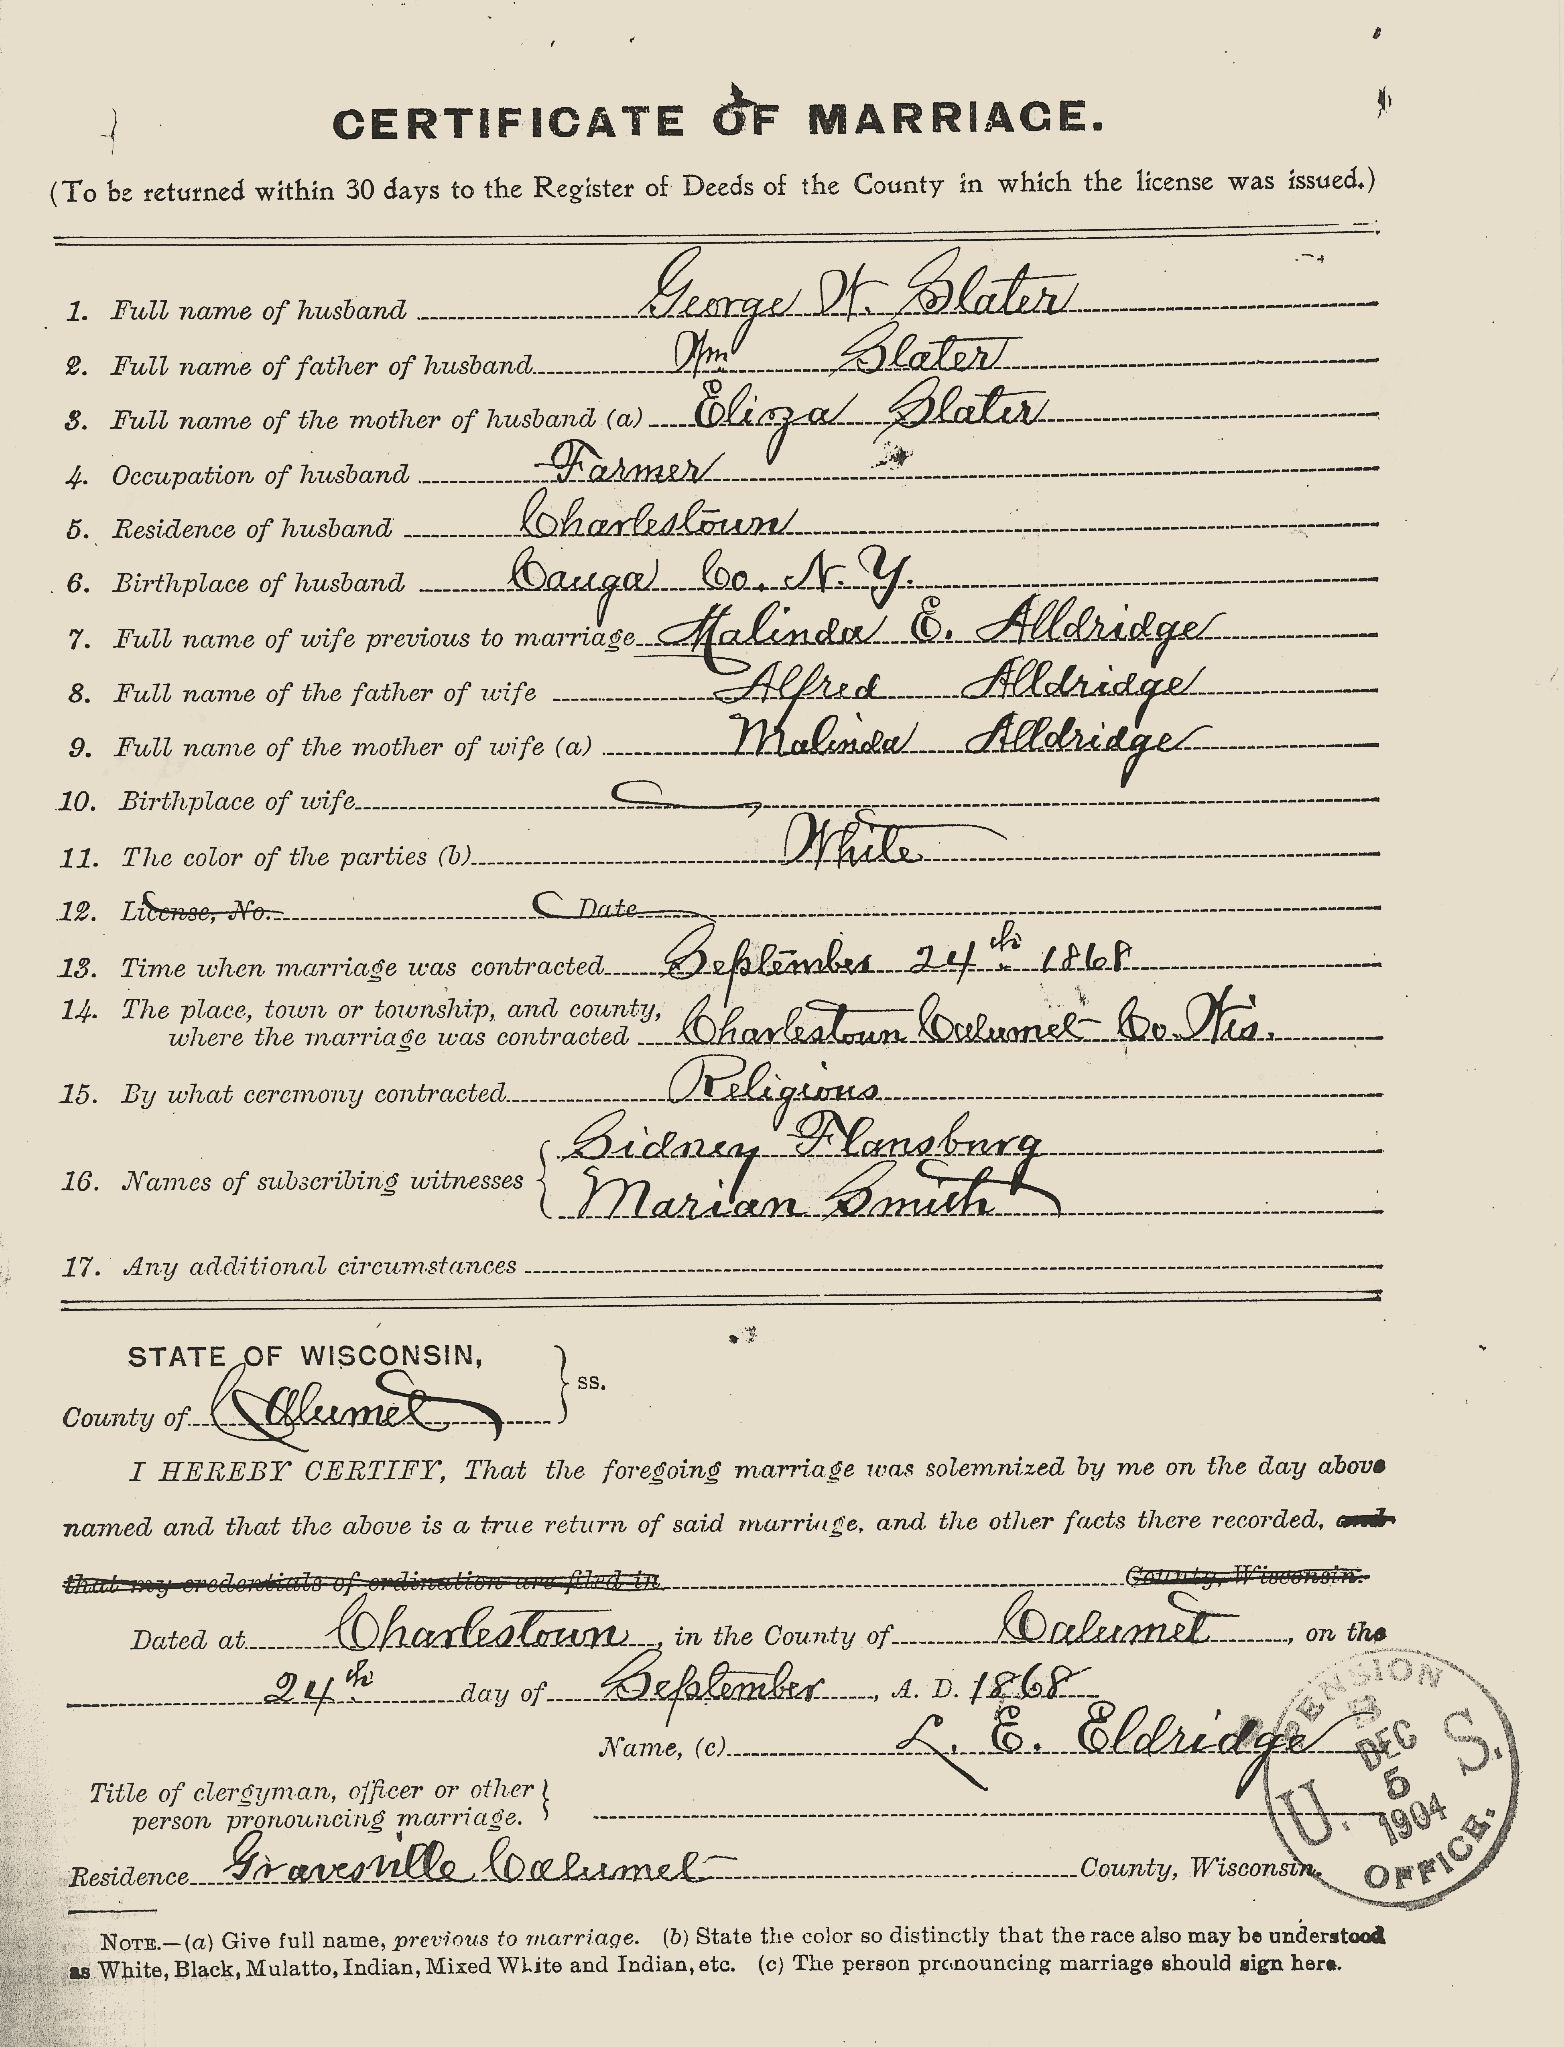 CERTIFICATE OF MARRIAGE.
(To be returned within 30 days to the Register of Deeds of the County in which the license was issued.)
1. Full name of husband George W. Slater
2. Full name of father of husband Wm Slater
3. Full name of the mother of husband (a) Eliza Slater
4. Occupation of husband Farmer
5. Residence of husband Charlestown
6. Birthplace of husband Cauga Co. N. Y.
7. Full name of wife previous to marriage Malinda E. Alldridge
8. Full name of the father of wife Alfred Alldridge
9. Full name of the mother of wife (a) Malinda Alldridge
10. Birthplace of wife
11. The color of the parties (b) White
12. License, No. Date
13. Time when marriage was contracted September 24th 1868
14. The place, town or township, and county,
where the marriage was contracted Charlestown Calumet Co. Wis.
15. By what ceremony contracted Religious
16. Names of subscribing witnesses { Sidney Flansburg
Marian Smith
17. Any additional circumstances
STATE OF WISCONSIN,
County of Calumet } ss.
I HEREBY CERTIFY, That the foregoing marriage was solemnized by me on the day above
named and that the above is a true return of said marriage, and the other facts there recorded, and
that my credentials of ordination are filed in County, Wisconsin.
Dated at Charlestown, in the County of Calumet, on the
24th day of September, A. D. 1868
Name, (c) L. E. Eldridge
Title of clergyman, officer or other }
person pronouncing marriage.
Residence Gravesville Calumet County, Wisconsin.
U. S. PENSION OFFICE.
DEC
5
1904
NOTE.—(a) Give full name, previous to marriage. (b) State the color so distinctly that the race also may be understood
as White, Black, Mulatto, Indian, Mixed White and Indian, etc. (c) The person pronouncing marriage should sign here.